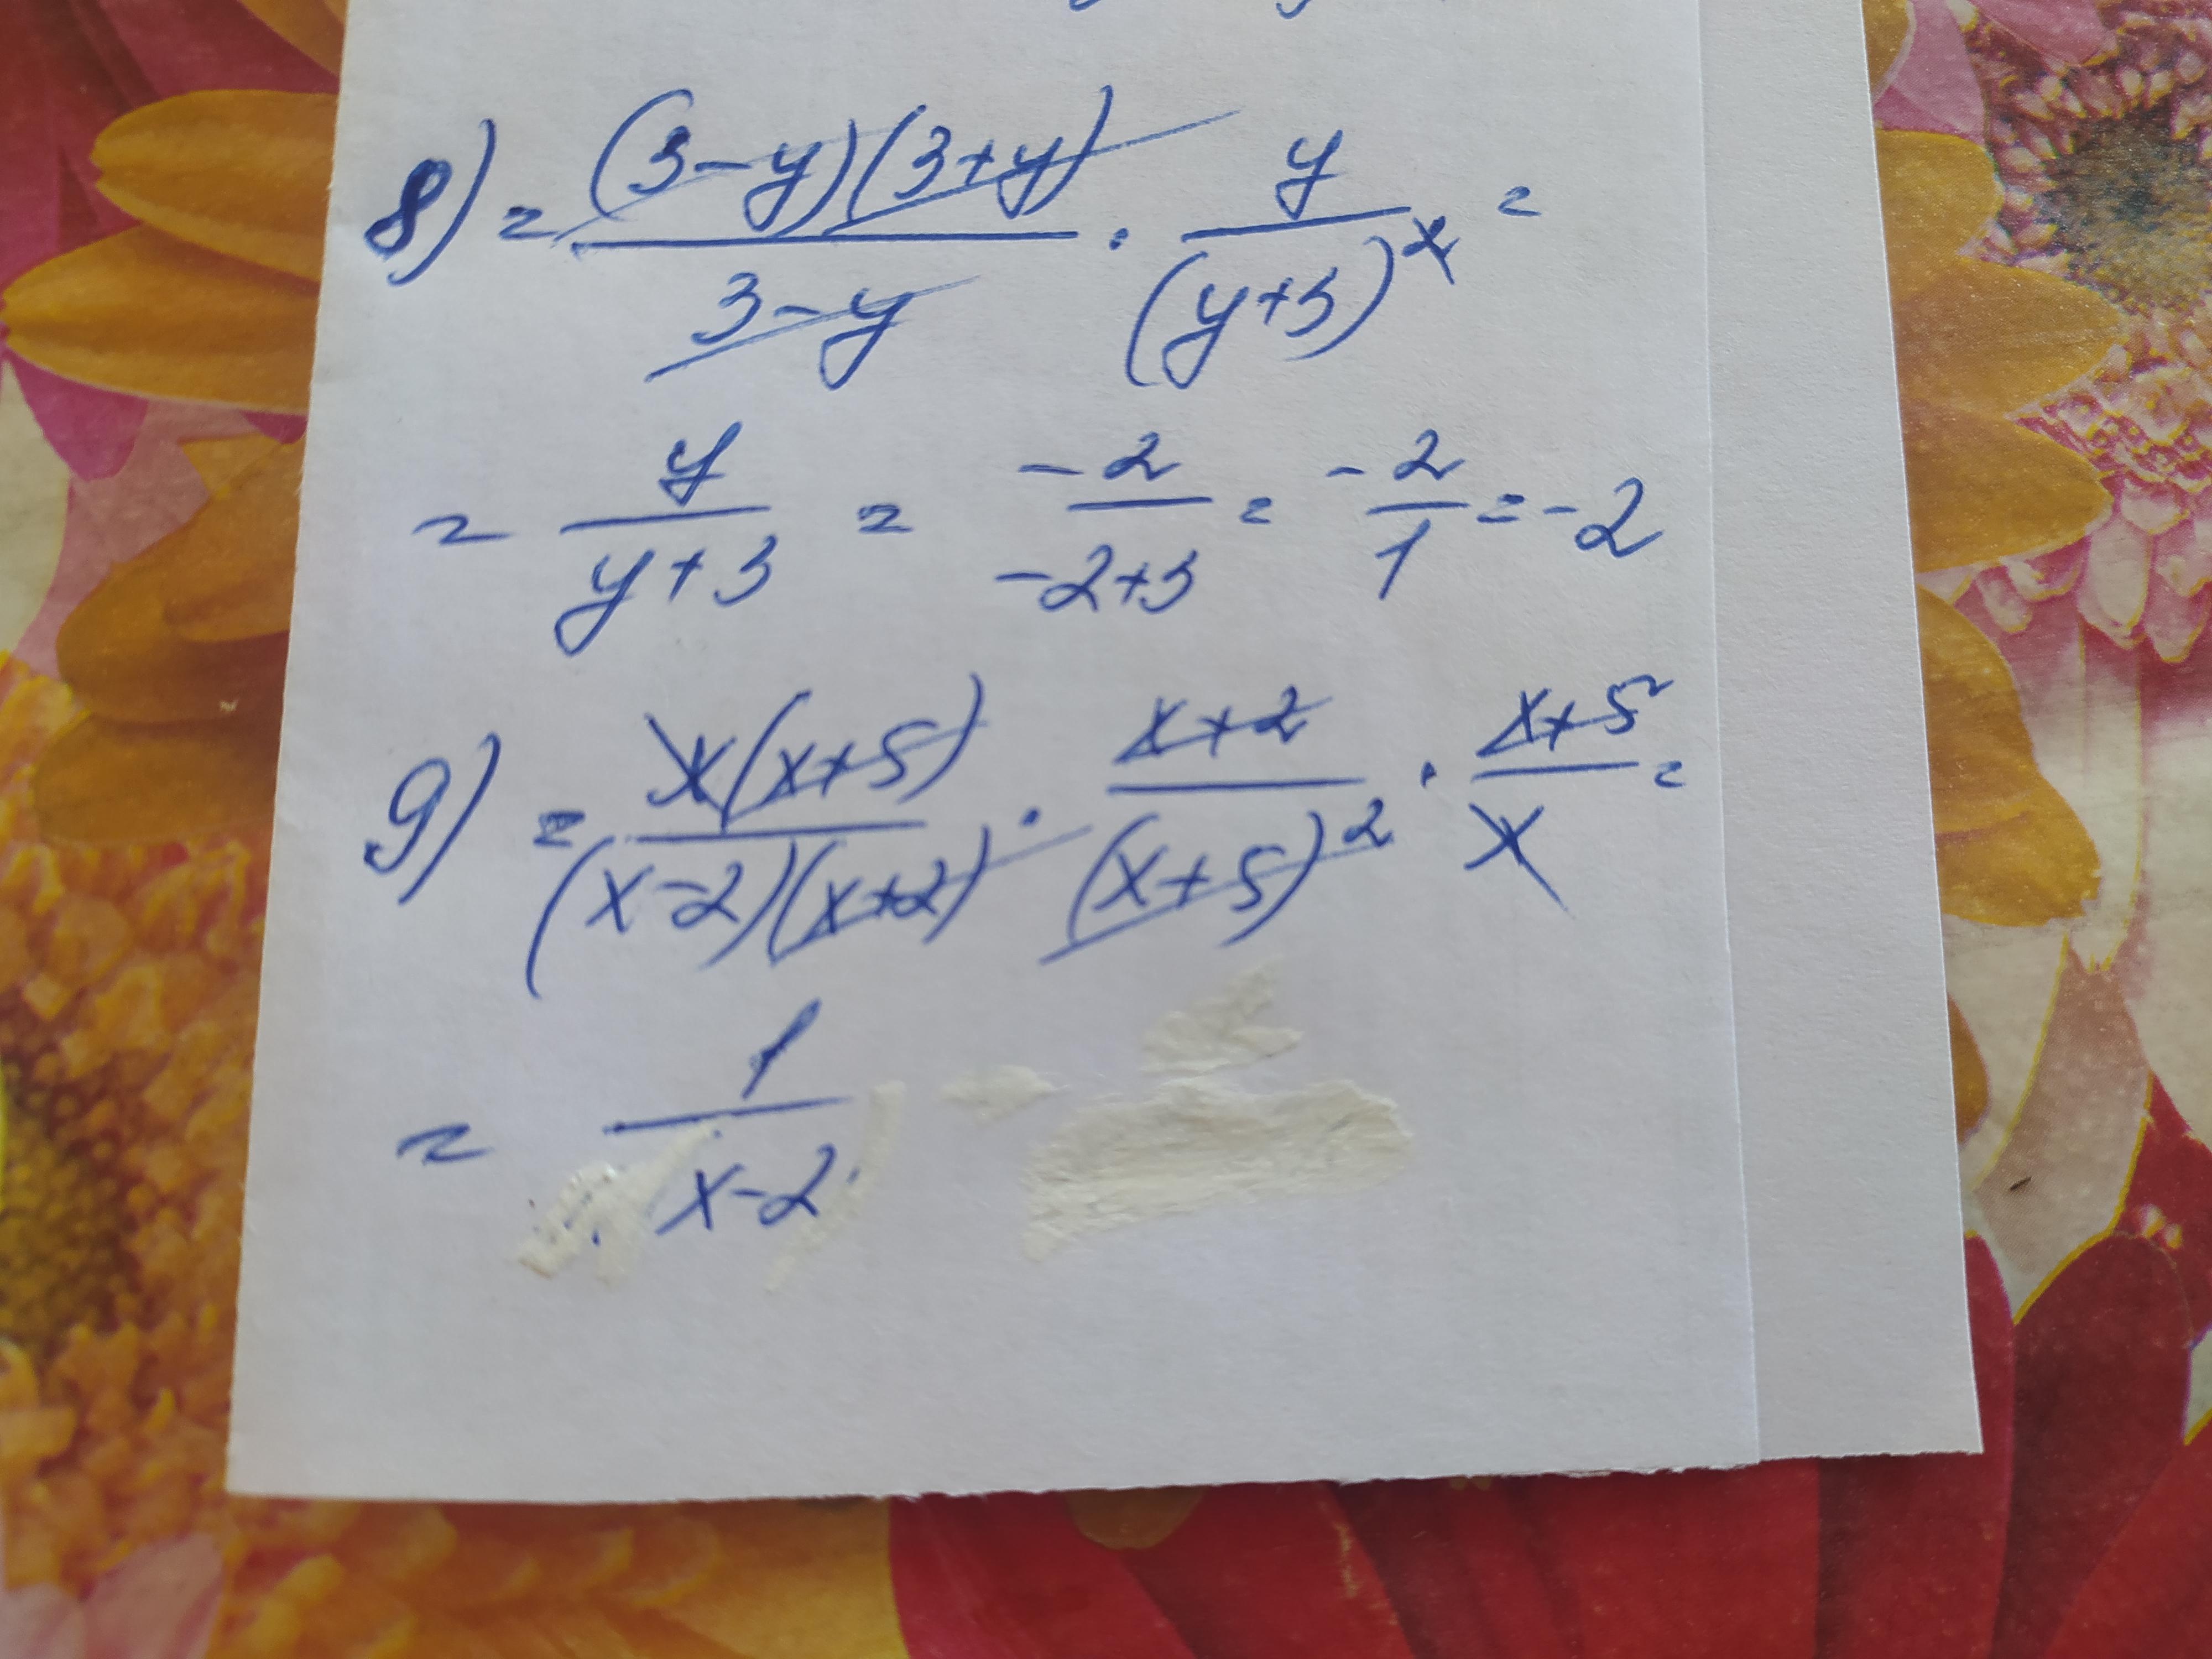 8) = (3-y)(3+y)/3-y · y/(y+3)² =
= y/y+3 = -2/-2+3 = -2/1 = -2
9) = x(x+5)/(x-2)(x+2) · x+2/(x+5)² · x+5/x =
= 1/x-2